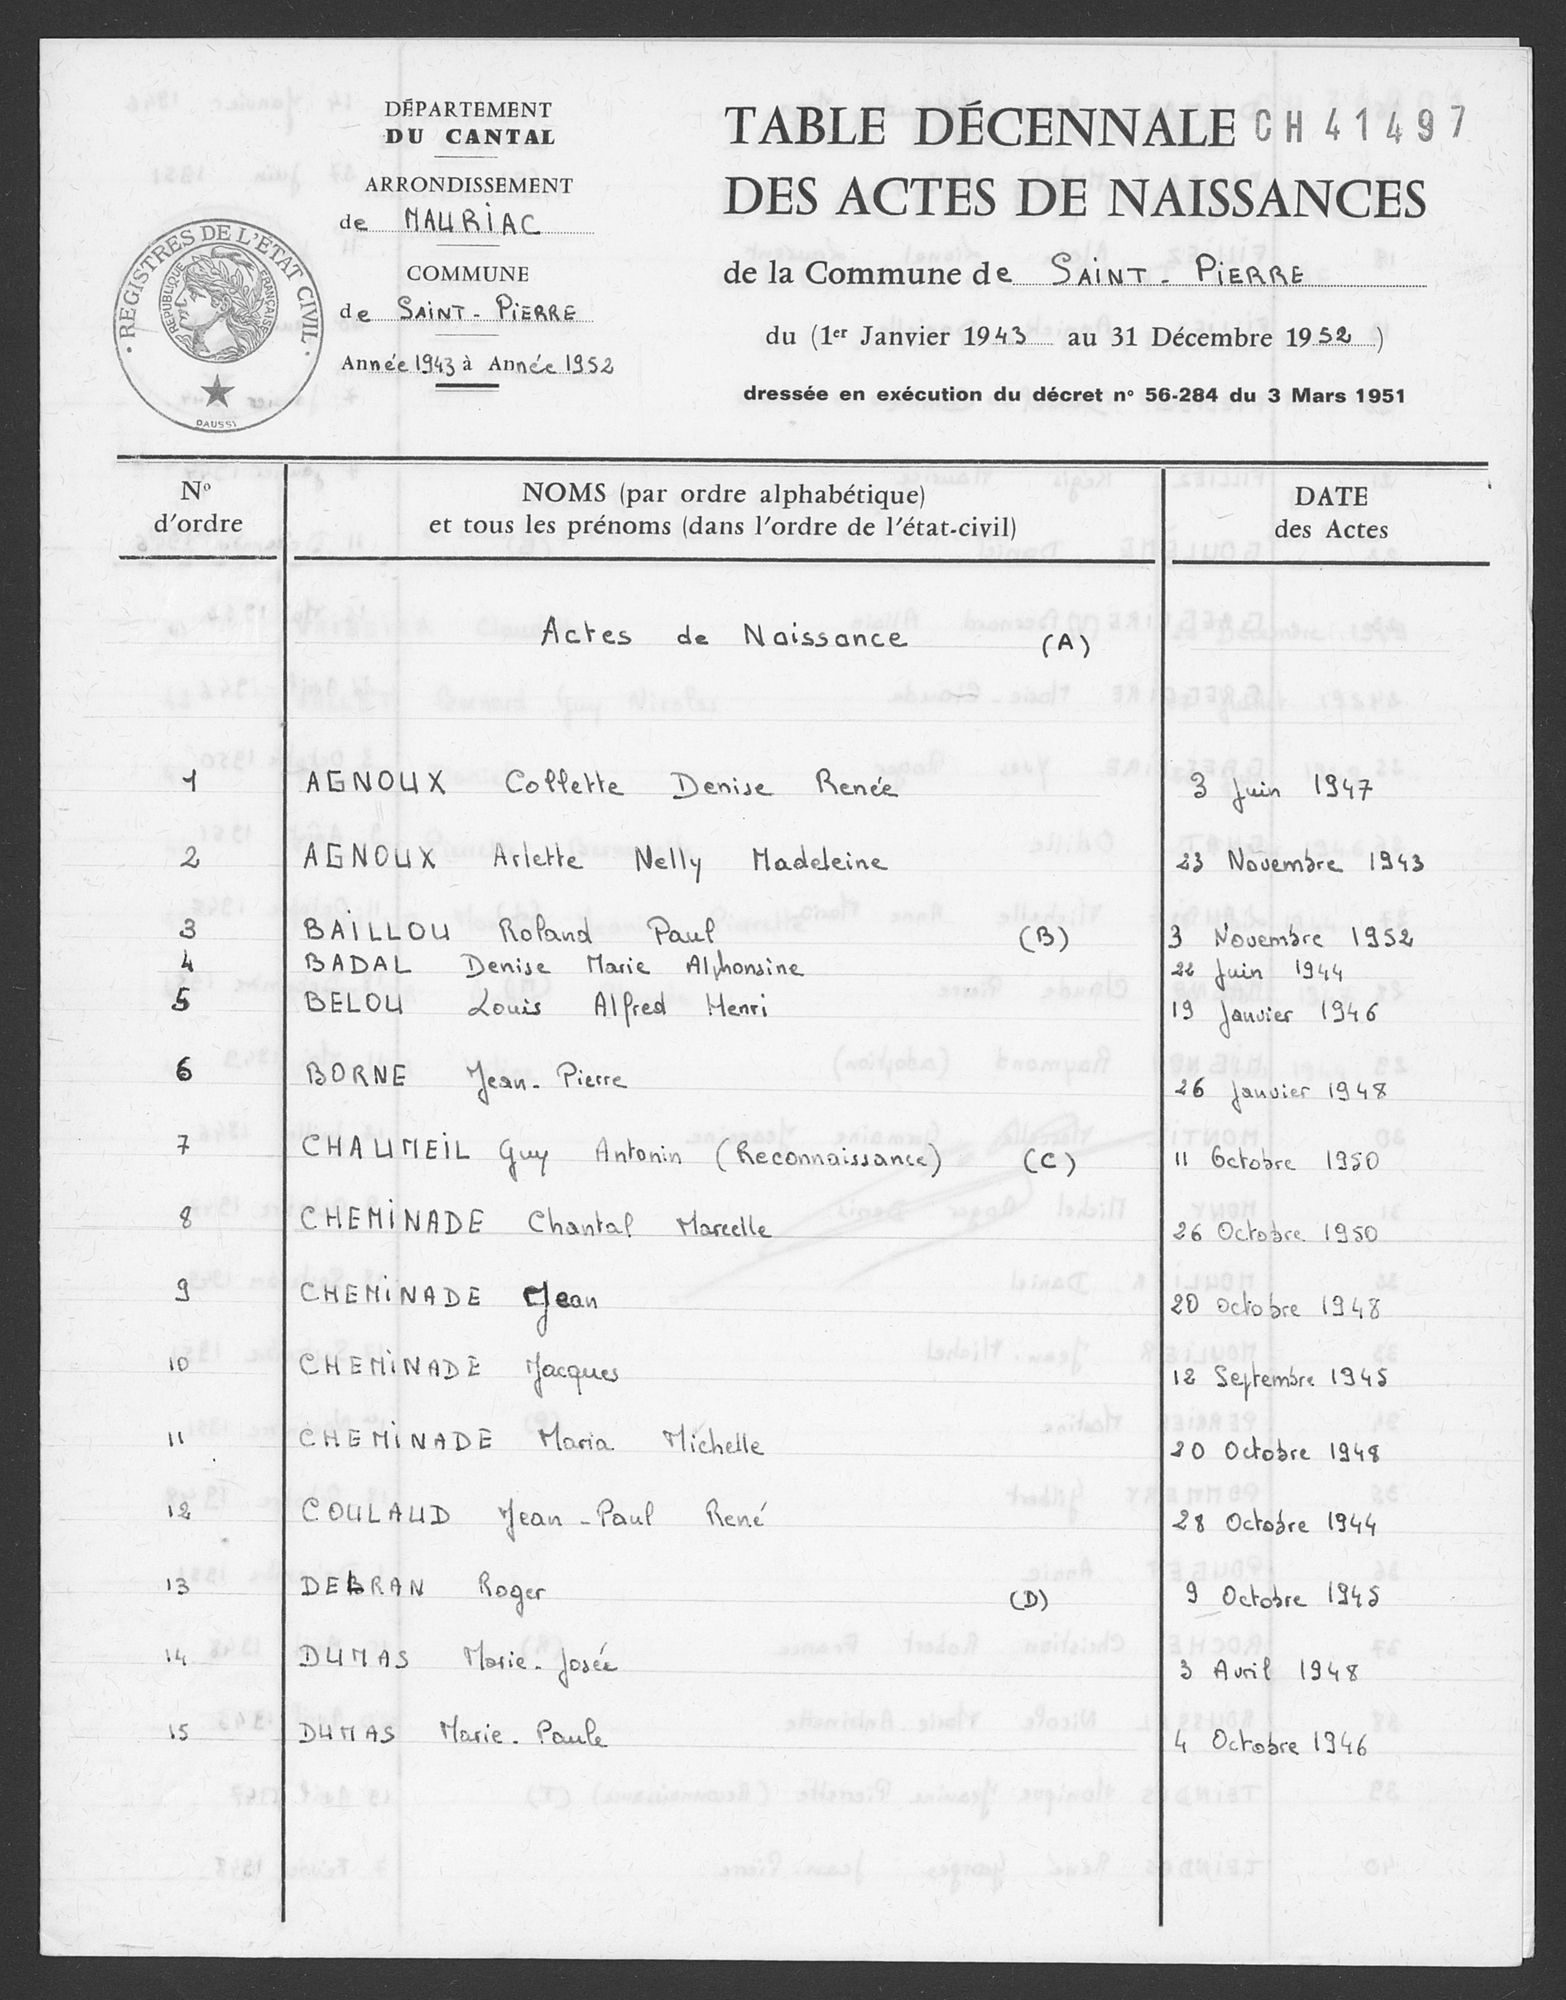 DÉPARTEMENT
DU CANTAL
ARRONDISSEMENT
de MAURIAC
COMMUNE
de SAINT - PIERRE
Année 1943 à Année 1952
REGISTRES DE L'ETAT CIVIL
REPUBLIQUE FRANÇAISE
DAUSSI
TABLE DÉCENNALE CH 41497
DES ACTES DE NAISSANCES
de la Commune de SAINT - PIERRE
du (1er Janvier 1943 au 31 Décembre 1952)
dressée en exécution du décret n° 56-284 du 3 Mars 1951
N° d'ordre
NOMS (par ordre alphabétique)
et tous les prénoms (dans l'ordre de l'état-civil)
DATE
des Actes
Actes de Naissance (A)
1 AGNOUX Collette Denise Renée 3 Juin 1947
2 AGNOUX Arlette Nelly Madeleine 23 Novembre 1943
3 BAILLOU Roland Paul (B) 3 Novembre 1952
4 BADAL Denise Marie Alphonsine 22 Juin 1944
5 BELOU Louis Alfred Henri 19 Janvier 1946
6 BORNE Jean-Pierre 26 Janvier 1948
7 CHAUMEIL Guy Antonin (Reconnaissance) (C) 11 Octobre 1950
8 CHEMINADE Chantal Marcelle 26 Octobre 1950
9 CHEMINADE Jean 20 octobre 1948
10 CHEMINADE Jacques 12 Septembre 1945
11 CHEMINADE Maria Michelle 20 Octobre 1948
12 COULAUD Jean-Paul René 28 Octobre 1944
13 DEBRAN Roger (D) 9 Octobre 1945
14 DUMAS Marie-Josée 3 Avril 1948
15 DUMAS Marie-Paule 4 Octobre 1946